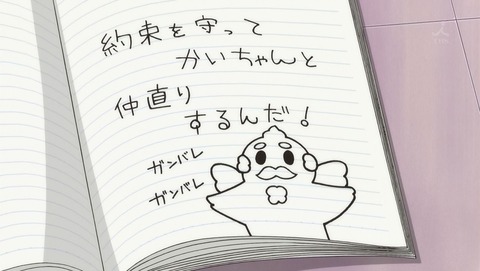 約束を守って
かいちゃんと
仲直り
するんだ!
ガンバレ
ガンバレ